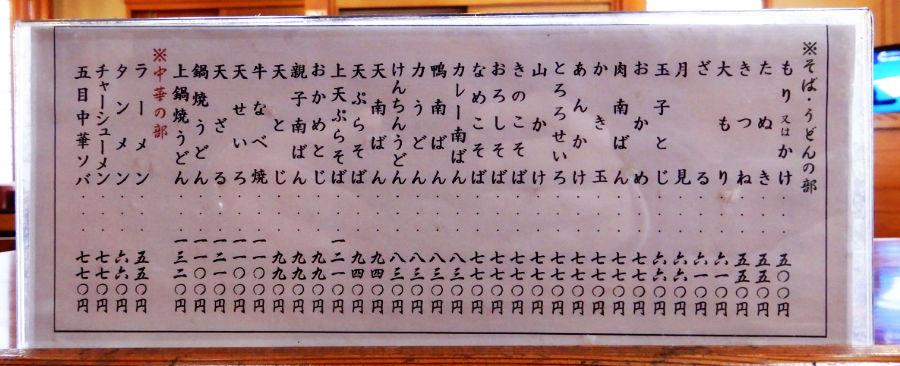 ※そば・うどんの部
もり又はかけ・・・五〇〇円
たぬき・・・五五〇円
きつね・・・五五〇円
大もり・・・六一〇円
ざる・・・六一〇円
月見・・・六六〇円
玉子とじ・・・六六〇円
おかめ・・・七七〇円
肉南ばん・・・七七〇円
かき玉・・・七七〇円
あんかけ・・・七七〇円
とろろせいろ・・・七七〇円
山かけ・・・七七〇円
きのこそば・・・七七〇円
おろしそば・・・七七〇円
なめこそば・・・七七〇円
カレー南ばん・・・八三〇円
鴨南ばん・・・八三〇円
力うどん・・・八三〇円
けんちんうどん・・・八三〇円
天南ばん・・・九四〇円
天ぷらそば・・・九四〇円
上天ぷらそば・・・一二一〇円
おかめとじ・・・九九〇円
親子南ばん・・・九九〇円
天とじ・・・九九〇円
牛なべ焼・・・一一〇〇円
天せいろ・・・一一〇〇円
天ざる・・・一二一〇円
鍋焼うどん・・・一一〇〇円
上鍋焼うどん・・・一三二〇円
※中華の部
ラーメン・・・五五〇円
タンメン・・・六六〇円
チャーシューメン・・・七七〇円
五目中華ソバ・・・七七〇円